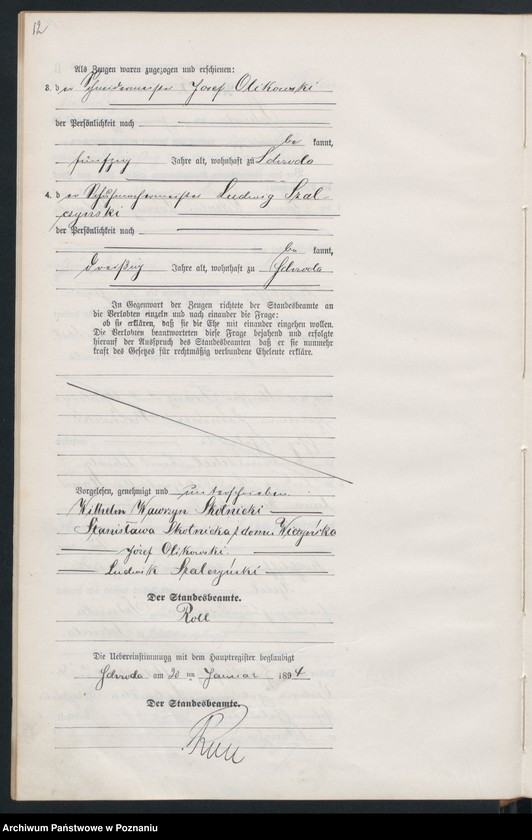 12
Als Zeugen waren zugezogen und erschienen:
3. der Schneidermeister Josef Olikowski
der Persönlichkeit nach
be kannt,
fünfzig Jahre alt, wohnhaft zu Schroda
4. der Schuhmachermeister Ludwig Szal-
czynski
der Persönlichkeit nach
be kannt,
dreißig Jahre alt, wohnhaft zu Schroda
In Gegenwart der Zeugen richtete der Standesbeamte an
die Verlobten einzeln und nach einander die Frage:
ob sie erklären, daß sie die Ehe mit einander eingehen wollen.
Die Verlobten beantworteten diese Frage bejahend und erfolgte
hierauf der Ausspruch des Standesbeamten, daß er sie nunmehr
kraft des Gesetzes für rechtmäßig verbundene Eheleute erkläre.
Vorgelesen, genehmigt und unterschrieben
Wilhelm Wawrzyn Skolnicki
Stanisława Skolnicka z domu Wiczyńska
Józef Olikowski
Ludwik Szalczyński
Der Standesbeamte.
Roll
Die Uebereinstimmung mit dem Hauptregister beglaubigt
Schroda am 20 ten Januar 1894
Der Standesbeamte.
Roll
Archiwum Państwowe w Poznaniu